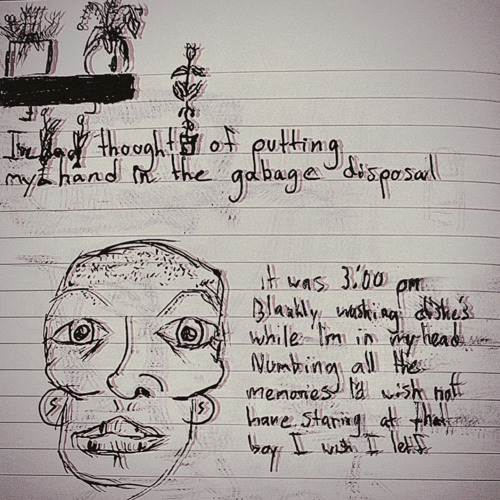 I had thoughts of putting
my hand in the gabage disposal
it was 3:00 pm
Blankly washing dishes
while I'm in my head
Numbing all the
memories I'd wish not
have staring at that
boy I wish I left